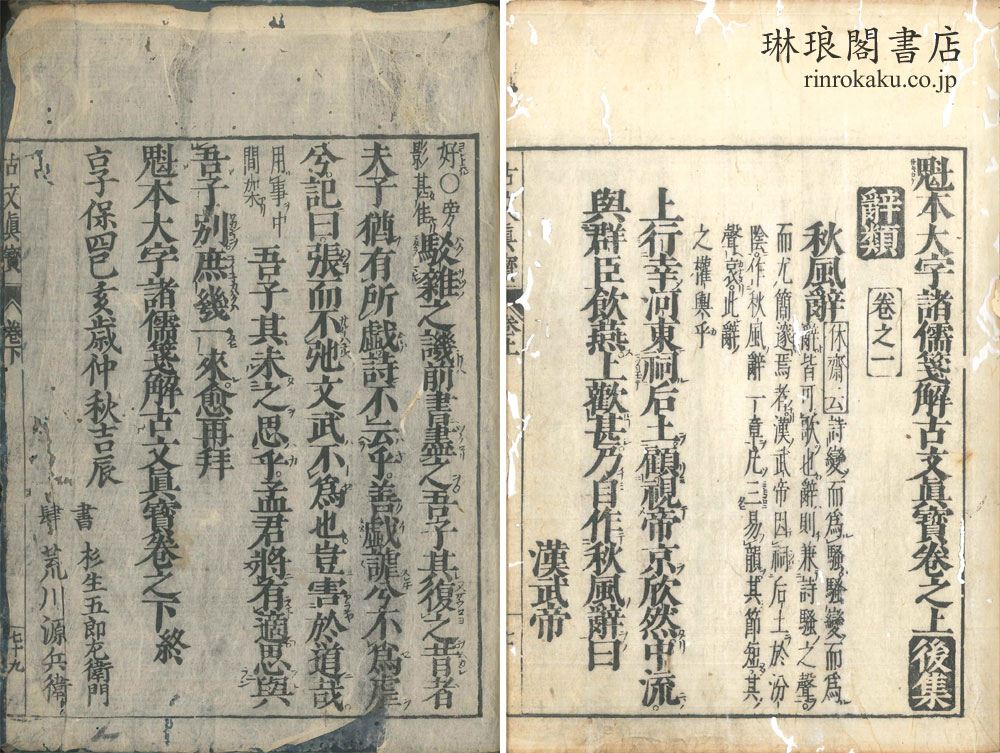 琳琅閣書店
rinrokaku.co.jp
魁本大字諸儒箋解古文眞寶卷之上 後集
辭類 卷之一
秋風辭 休齋云詩變而爲騷騷變而爲
辭皆可歌也辭則兼詩騷之聲
而尤簡邃焉者漢武帝因祠后土於汾
陰作秋風辭一章凡三易韻其節短其
聲哀此辭
之權輿乎
漢武帝
上行幸河東祠后土顧視帝京欣然中流
與群臣飲燕上歡甚乃自作秋風辭曰
好〇旁
影甚佳 駁雜之譏前書盡之吾子其復之昔者
夫子猶有所戯詩不云乎善戯謔兮不爲虐
兮記曰張而不弛文武不爲也豈害於道哉
用事中
間架 吾子其未之思乎孟君將有適思與
吾子別庶幾一來愈再拜
魁本大字諸儒箋解古文眞寶卷之下終
享保四己亥歳仲秋吉辰
書 杉生五郎左衛門
肆 荒川源兵衛
古文眞寶 卷下
七十九